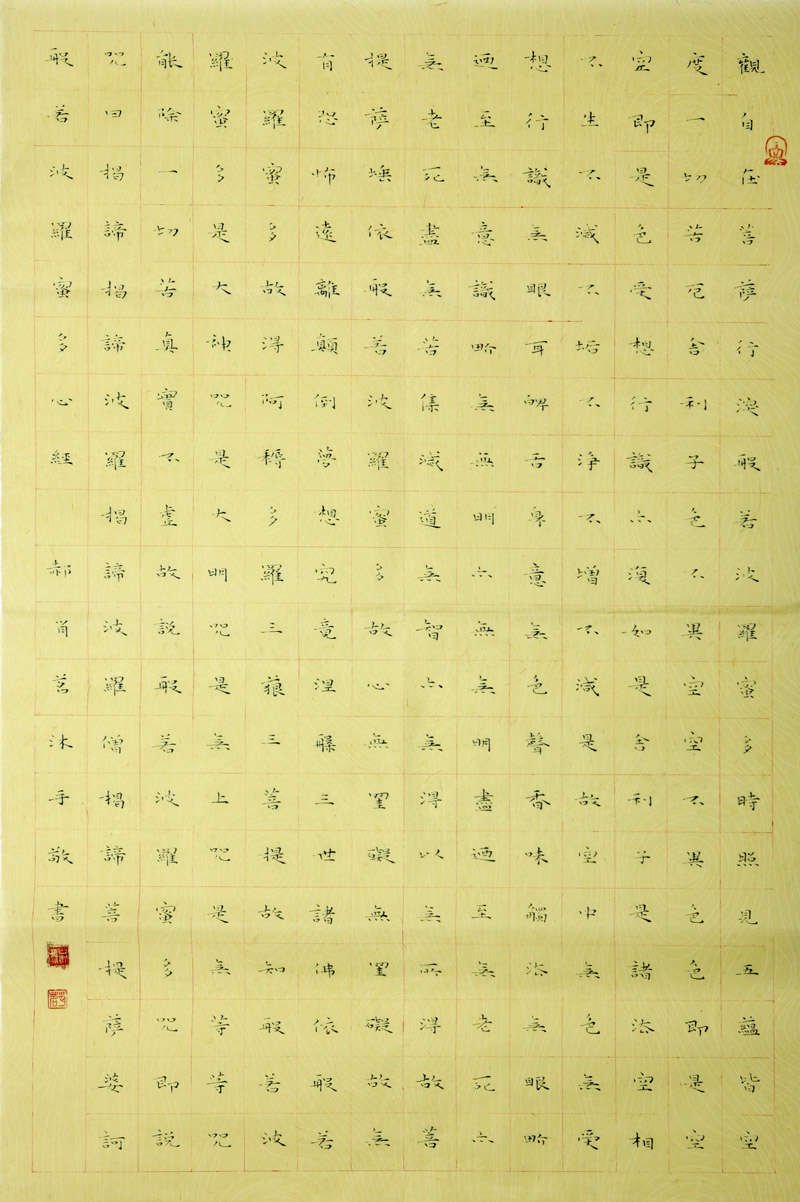 觀自在菩薩行深般若波羅蜜多時照見五蘊皆空
度一切苦厄舍利子色不異空空不異色色即是空
空即是色受想行識亦復如是舍利子是諸法空相
不生不滅不垢不淨不增不減是故空中無色無受
想行識無眼耳鼻舌身意無色聲香味觸法無眼界
迺至無意識界無無明亦無無明盡迺至無老死亦
無老死盡無苦集滅道無智亦無得以無所得故菩
提薩埵依般若波羅蜜多故心無罣礙無罣礙故無
有恐怖遠離顛倒夢想究竟涅槃三世諸佛依般若
波羅蜜多故得阿耨多羅三藐三菩提故知般若波
羅蜜多是大神咒是大明咒是無上咒是無等等咒
能除一切苦真實不虛故說般若波羅蜜多咒即說
咒曰揭諦揭諦波羅揭諦波羅僧揭諦菩提薩婆訶
般若波羅蜜多心經 郝肖茗沐手敬書